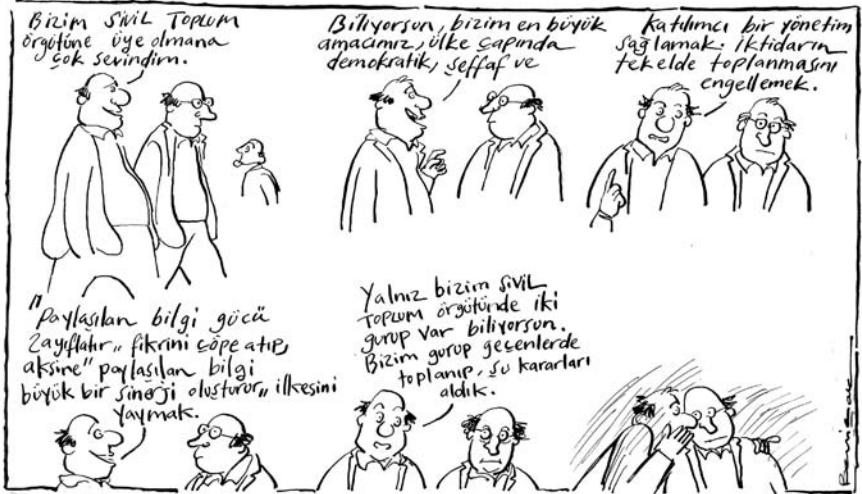 Bizim SİVİL TOPLUM
örgütüne üye olmana
çok sevindim.
Biliyorsun, bizim en büyük
amacımız, ülke çapında
demokratik, şeffaf ve
Katılımcı bir yönetim
sağlamak. İktidarın
tekelde toplanmasını
engellemek.
"paylaşılan bilgi gücü
zayıflatır" fikrini çöpe atıp,
aksine "paylaşılan bilgi
büyük bir sinerji oluşturur" ilkesini
yaymak.
Yalnız bizim SİVİL
TOPLUM örgütünde iki
gurup var biliyorsun.
Bizim gurup geçenlerde
toplanıp, şu kararları
aldık.